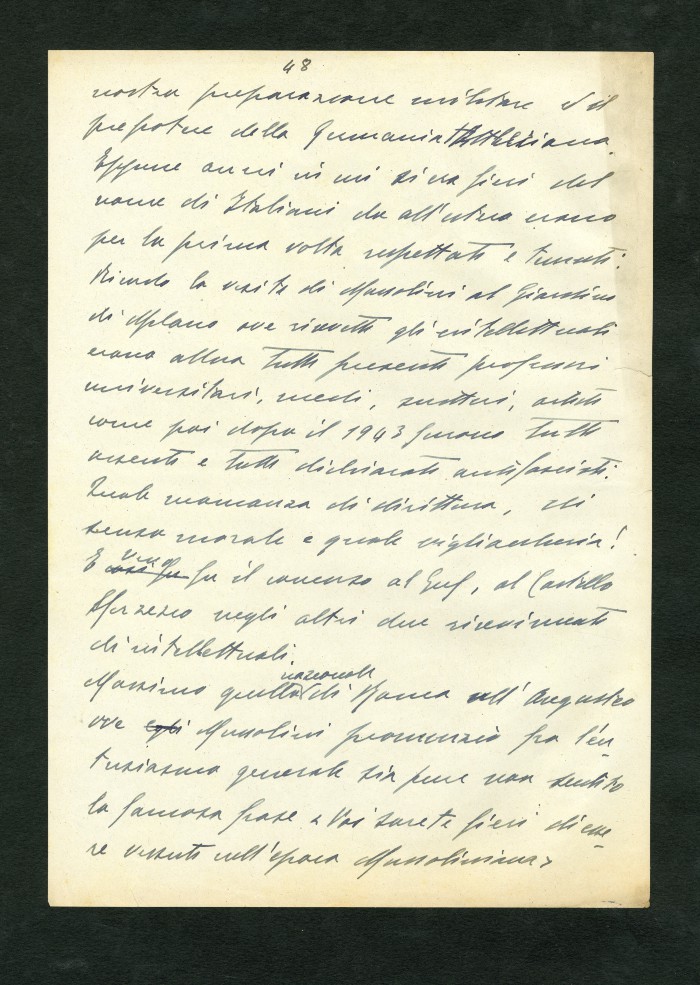 48
nostra preparazione militare e il
prepotere della Germania Hitleriana.
Eppure anni in cui si era fieri del
nome di Italiani da all'estero erano
per la prima volta rispettati e temuti.
Ricordo la visita di Mussolini al Giardino
di Milano ove riuniti gli intellettuali
erano allora tutti presenti professori
universitari, medici, scrittori, artisti
come poi dopo il 1943 furono tutti
assenti e tutti dichiarati antifascisti.
Quale mancanza di dirittura, di
senso morale e quale vigliaccheria!
E vivo fu il consenso al Guf, al Castello
Sforzesco negli altri due ricevimenti
di intellettuali.
Massimo quello nazionale di Roma all'Augusteo
ove egli Mussolini pronunziò fra l'en-
tusiasmo generale sia pure non sentito
la famosa frase « Voi sarete fieri di esse-
re vissuti nell'epoca Mussoliniana»